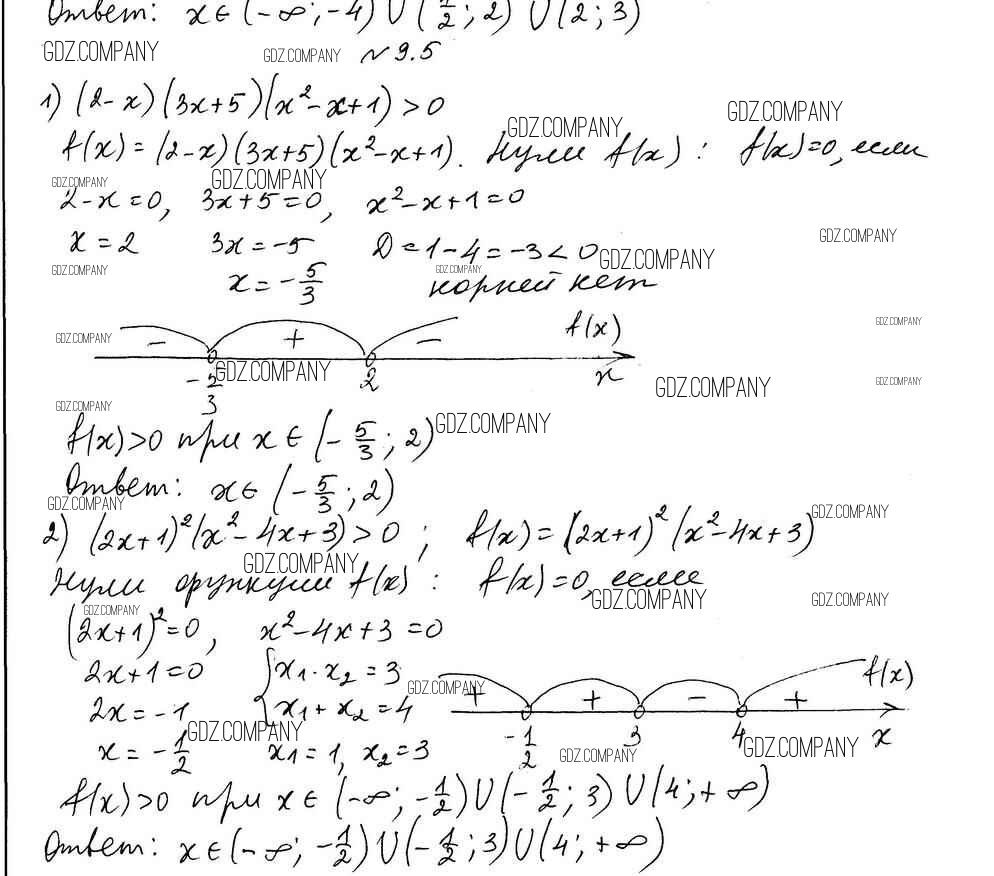 Ответ: x ∈ (-∞; -4) ∪ (1/2; 2) ∪ (2; 3)
GDZ.COMPANY GDZ.COMPANY № 9.5
1) (2-x)(3x+5)(x²-x+1)>0
GDZ.COMPANY GDZ.COMPANY
f(x)=(2-x)(3x+5)(x²-x+1). Нули f(x): f(x)=0, если
GDZ.COMPANY GDZ.COMPANY
2-x=0, 3x+5=0, x²-x+1=0
x=2 3x=-5 D=1-4=-3<0 GDZ.COMPANY
GDZ.COMPANY GDZ.COMPANY GDZ.COMPANY
x=-5/3 корней нет
GDZ.COMPANY - + - f(x) GDZ.COMPANY
-5/3 GDZ.COMPANY 2 x GDZ.COMPANY GDZ.COMPANY
GDZ.COMPANY
f(x)>0 при x ∈ (-5/3; 2) GDZ.COMPANY
Ответ: x ∈ (-5/3; 2)
GDZ.COMPANY GDZ.COMPANY
2) (2x+1)²(x²-4x+3)>0; f(x)=(2x+1)²(x²-4x+3)
GDZ.COMPANY
Нули функции f(x): f(x)=0, если
GDZ.COMPANY GDZ.COMPANY GDZ.COMPANY
(2x+1)²=0, x²-4x+3=0
2x+1=0 {x₁·x₂=3 GDZ.COMPANY + + - + f(x)
2x=-1 x₁+x₂=4
GDZ.COMPANY -1/2 3 4 GDZ.COMPANY x
x=-1/2 x₁=1, x₂=3 GDZ.COMPANY
f(x)>0 при x ∈ (-∞; -1/2) ∪ (-1/2; 3) ∪ (4; +∞)
Ответ: x ∈ (-∞; -1/2) ∪ (-1/2; 3) ∪ (4; +∞)